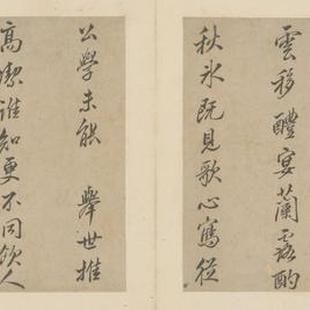 雲移醴宴蘭露酌
秋氷既見歌心寫從
公學未能 舉世推
高潔誰知更不同飲人